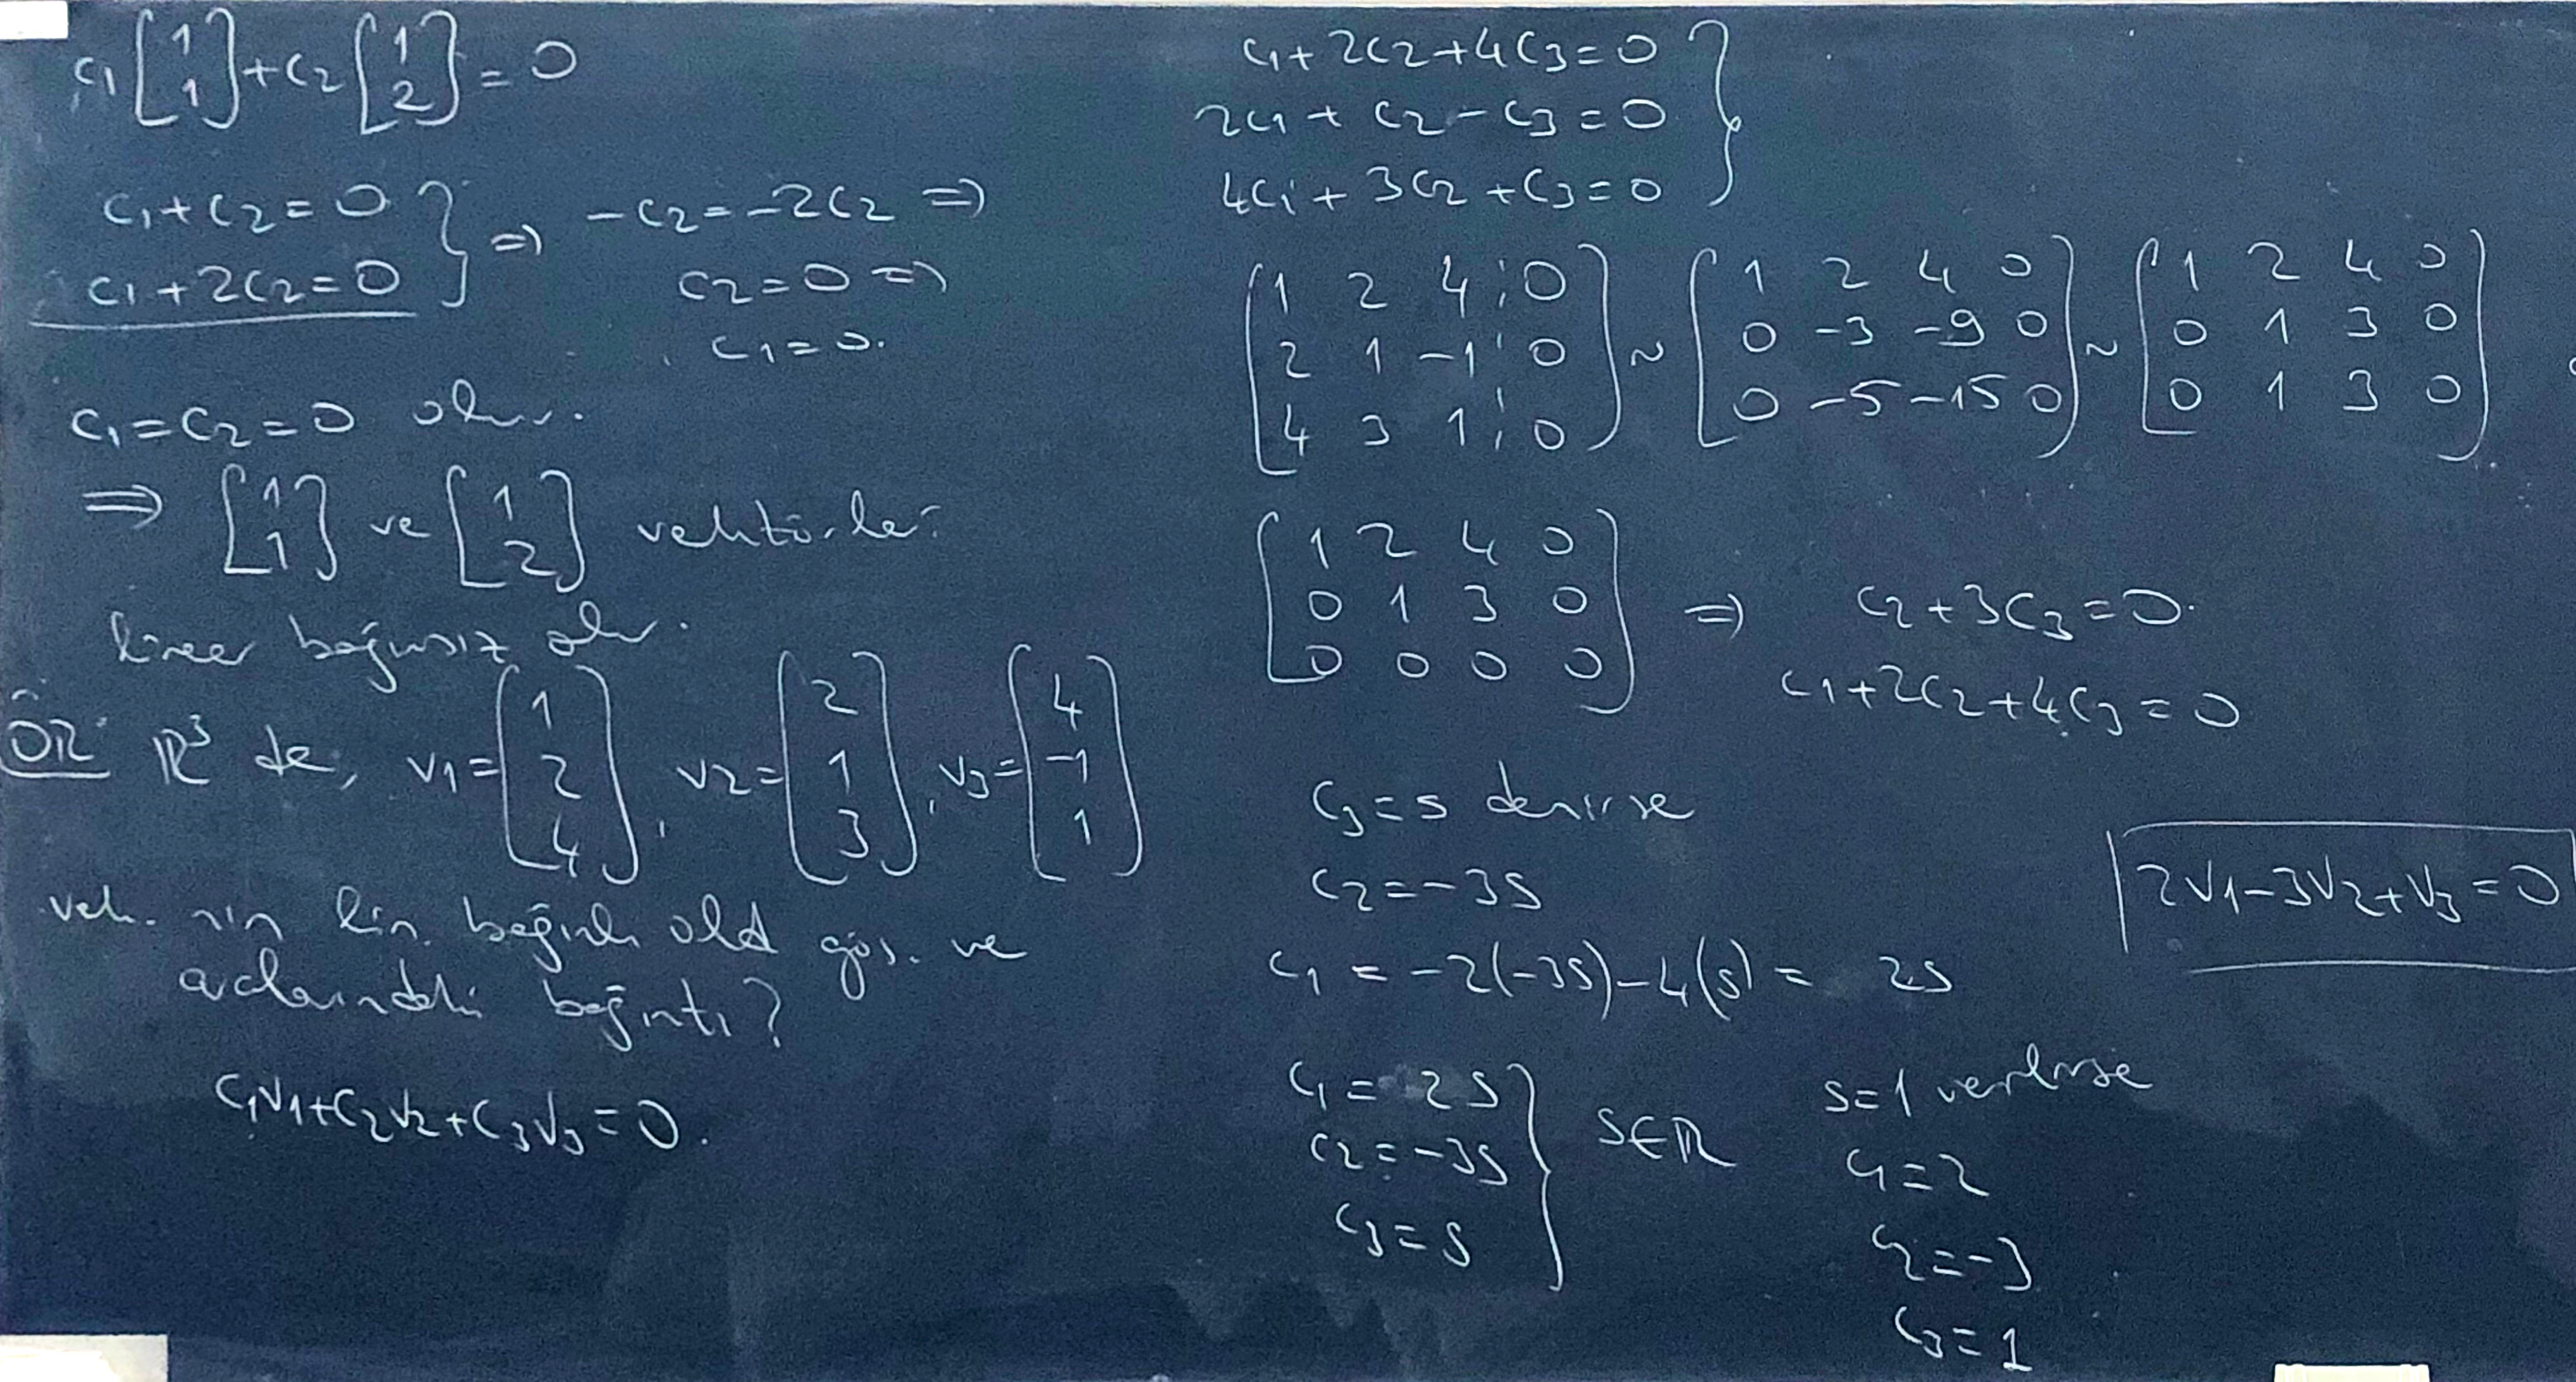 c₁[1 1] + c₂[1 2] = 0
c₁+c₂=0 } ⇒ -c₂=-2c₂ ⇒
c₁+2c₂=0 c₂=0 ⇒
c₁=0.
c₁=c₂=0 olur.
⇒ [1 1] ve [1 2] vektörleri
lineer bağımsız olur.
ÖR ℝ³ de, v₁=[1 2 4], v₂=[2 1 3], v₃=[4 -1 1]
vek. nin lin. bağımlı old gös. ve
aralarındaki bağıntı?
c₁v₁+c₂v₂+c₃v₃=0.
c₁+2c₂+4c₃=0
2c₁+c₂-c₃=0
4c₁+3c₂+c₃=0 }
[1 2 4 ¦ 0] ~ [1 2 4 0] ~ [1 2 4 0]
[2 1 -1 ¦ 0] [0 -3 -9 0] [0 1 3 0]
[4 3 1 ¦ 0] [0 -5 -15 0] [0 1 3 0]
[1 2 4 0]
[0 1 3 0] ⇒ c₂+3c₃=0.
[0 0 0 0] c₁+2c₂+4c₃=0
c₃=s denirse
c₂=-3s
c₁=-2(-3s)-4(s)=2s
c₁=2s
c₂=-3s } s∈ℝ
c₃=s
s=1 verilirse
c₁=2
c₂=-3
c₃=1
2v₁-3v₂+v₃=0